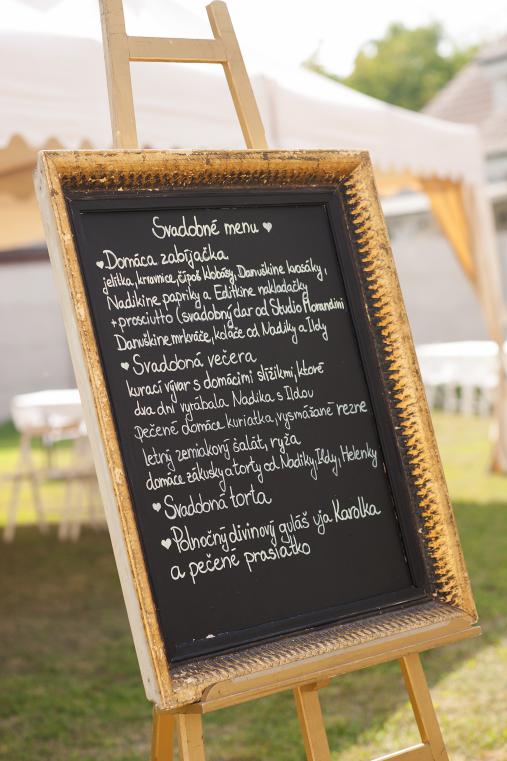 Svadobné menu ♥
♥Domáca zabíjačka
jelitka, krvavnice, čipoš klobásy, Danuškine lososáky,
Nadikine papriky a Editkine nakladačky
+ prosciutto (svadobný dar od Studio Morandini
Danuškine mrkváče, koláče od Nadiky a Ildy
♥Svadobná večera
kurací vývar s domácimi slížikmi, ktoré
dva dni vyrábala Nadika s Ildou
pečené domáce kuriatka, vysmážané rezne
letný zemiakový šalát, ryža
domáce zákusky a torty od Nadiky, Ildy, Helenky
♥Svadobná torta
♥Polnočný divinový guláš uja Karolka
a pečené prasiatko